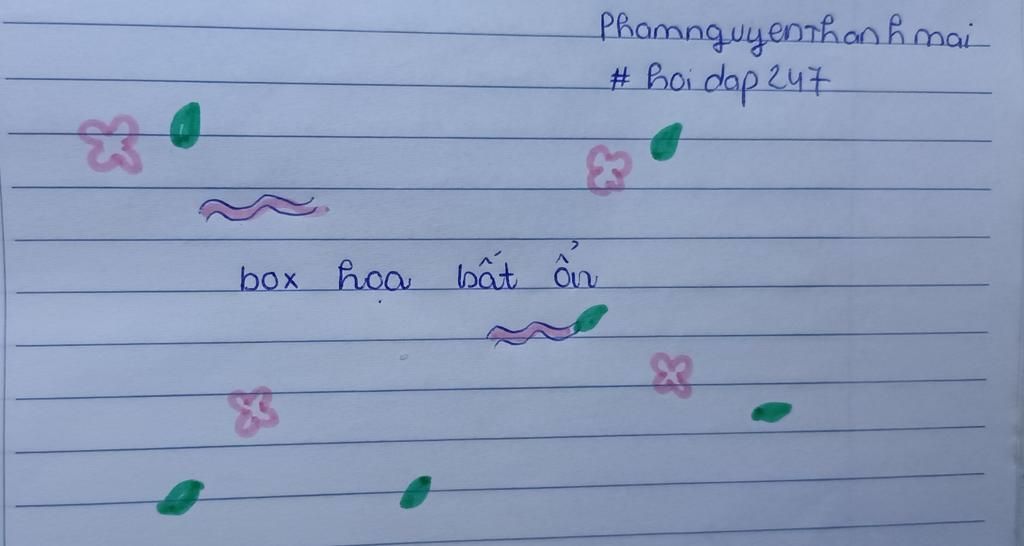 Phamnguyenthanhmai
# hoidap247
box họa bất ổn